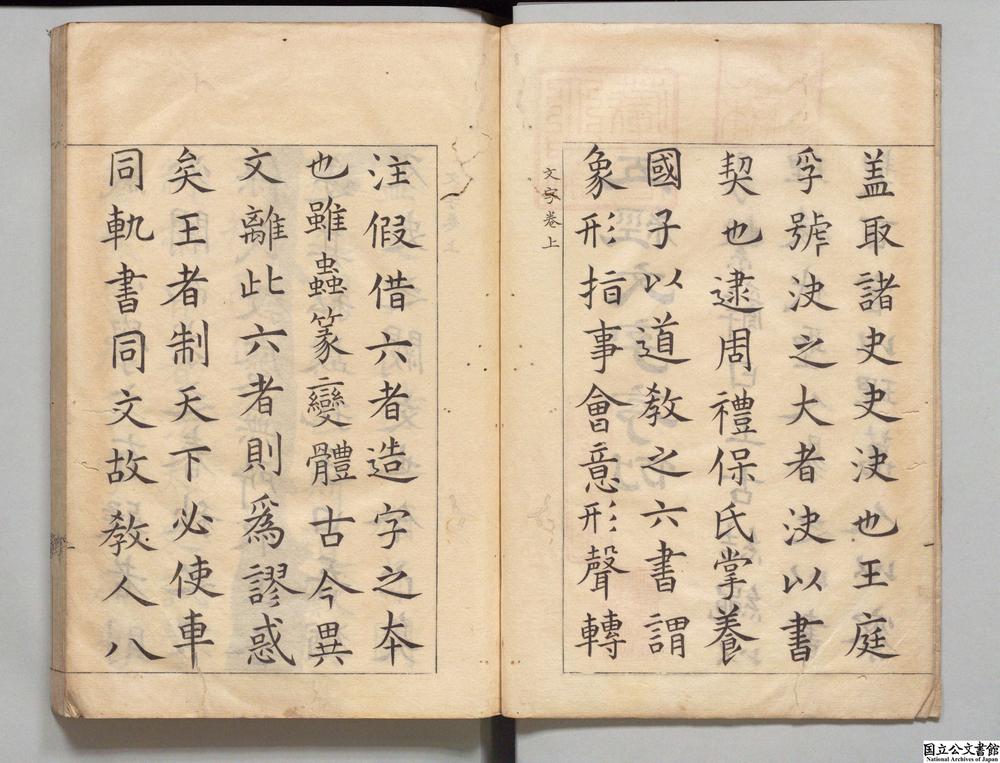 蓋取諸夬夬決也王庭
孚號決之大者決以書
契也逮周禮保氏掌養
國子以道教之六書謂
象形指事會意形聲轉
文字卷上
注假借六者造字之本
也雖蟲篆變體古今異
文離此六者則爲謬惑
矣王者制天下必使車
同軌書同文故教人八
国立公文書館
National Archives of Japan